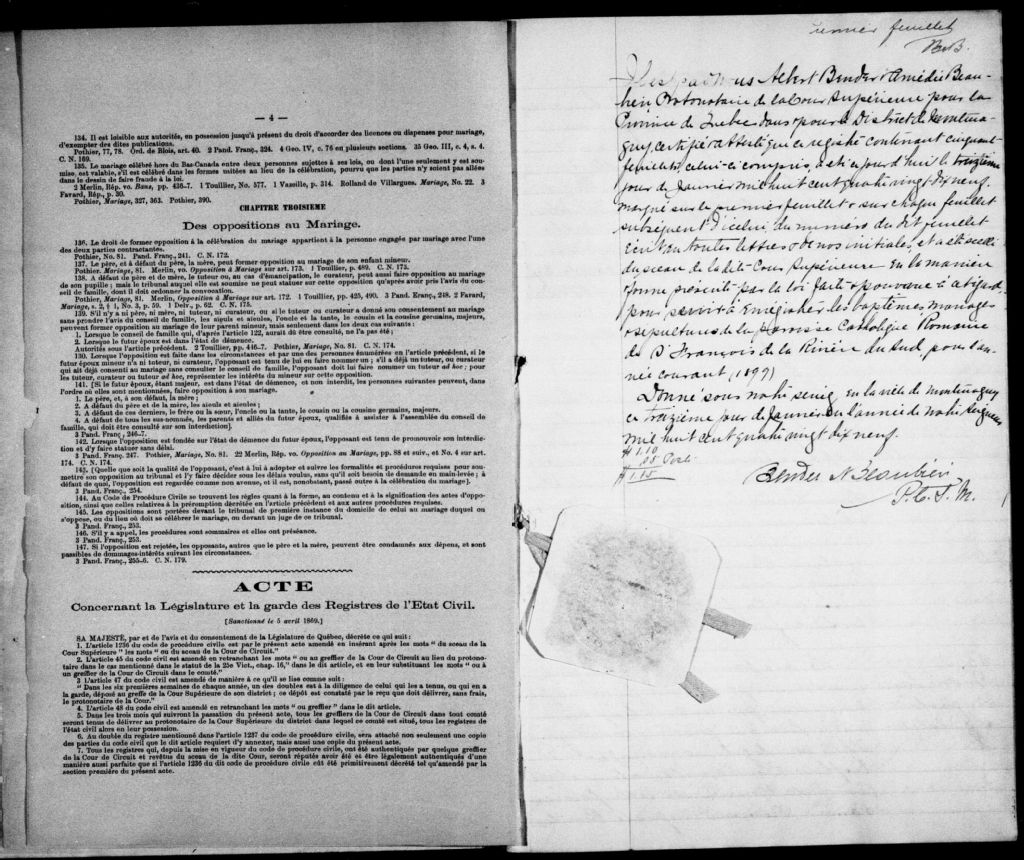 — 4 —
134. Il est loisible aux autorités, en possession jusqu'à présent du droit d'accorder des licences ou dispenses pour mariage,
d'exempter des dites publications.
Pothier, 77, 78. Ord. de Blois, art. 40. 2 Pand. Franç., 324. 4 Geo. IV, c. 76 en plusieurs sections. 35 Geo. III, c. 4, s. 4.
C. N. 169.
135. Le mariage célébré hors du Bas-Canada entre deux personnes sujettes à ses lois, ou dont l'une seulement y est sou-
mise, est valable, s'il est célébré dans les formes usitées au lieu de la célébration, pourvu que les parties n'y soient pas allées
dans le dessin de faire fraude à la loi.
2 Merlin, Rép. vo. Bans, pp. 436-7. 1 Touillier, No. 577. 1 Vazille, p. 314. Rolland de Villargues. Mariage, No. 22. 3
Favard, Rép., p. 30.
Pothier, Mariage, 327, 363. Pothier, 390.
CHAPITRE TROISIEME
Des oppositions au Mariage.
136. Le droit de former opposition à la célébration du mariage appartient à la personne engagée par mariage avec l'une
des deux parties contractantes.
Pothier, No. 81. Pand. Franç., 241. C. N. 172.
137. Le père, et à défaut du père, la mère, peut former opposition au mariage de son enfant mineur.
Pothier, Mariage, 81. Merlin, vo. Opposition à Mariage sur art. 173. 1 Touillier, p. 489. C. N. 173.
138. A défaut de père et de mère, le tuteur ou, au cas d'émancipation, le curateur, peut aussi faire opposition au mariage
de son pupille; mais le tribunal auquel elle est soumise ne peut statuer sur cette opposition qu'après avoir pris l'avis du con-
seil de famille, dont il doit ordonner la convocation.
Pothier, Mariage, 81. Merlin, Opposition à Mariage sur art. 172. 1 Touillier, pp. 425, 490. 3 Pand. Franç., 248. 2 Favard,
Mariage, s. 2, § 1, No. 3, p. 59. 1 Delv., p. 62. C. N. 175.
139. S'il n'y a ni père, ni mère, ni tuteur, ni curateur, ou si le tuteur ou curateur a donné son consentement au mariage
sans prendre l'avis du conseil de famille, les aïeuls et aïeules, l'oncle et la tante, le cousin et la cousine germains, majeurs,
peuvent former opposition au mariage de leur parent mineur, mais seulement dans les deux cas suivants :
1. Lorsque le conseil de famille qui, d'après l'article 122, aurait dû être consulté, ne l'a pas été;
2. Lorsque le futur époux est dans l'état de démence.
Autorités sous l'article précédent. 2 Touillier, pp. 446-7. Pothier, Mariage, No. 81. C. N. 174.
130. Lorsque l'opposition est faite dans les circonstances et par une des personnes énumérées en l'article précédent, si le
futur époux mineur n'a ni tuteur, ni curateur, l'opposant est tenu de lui en faire nommer un; s'il a déjà un tuteur, ou curateur
qui ait déjà consenti au mariage sans consulter le conseil de famille, l'opposant doit lui faire nommer un tuteur ad hoc; pour
les tuteur, curateur ou tuteur ad hoc, représenter les intérêts du mineur sur cette opposition.
141. [Si le futur époux, étant majeur, est dans l'état de démence, et non interdit, les personnes suivantes peuvent, dans
l'ordre où elles sont mentionnées, faire opposition à son mariage.
1. Le père, et, à son défaut, la mère;
2. A défaut du père et de la mère, les aïeuls et aïeules;
3. A défaut de ces derniers, le frère ou la sœur, l'oncle ou la tante, le cousin ou la cousine germains, majeurs.
4. A défaut de tous les sus-nommés, les parents et alliés du futur époux, qualifiés à assister à l'assemblée du conseil de
famille, qui doit être consulté sur son interdiction].
3 Pand. Franç., 246-7.
142. Lorsque l'opposition est fondée sur l'état de démence du futur époux, l'opposant est tenu de promouvoir son interdic-
tion et d'y faire statuer sans délai.
3 Pand. Franç. 247. Pothier, Mariage, No. 81. 22 Merlin, Rép. vo. Opposition au Mariage, pp. 88 et suiv., et No. 4 sur art.
174. C. N. 174.
143. [Quelque soit la qualité de l'opposant, c'est à lui à adopter et suivre les formalités et procédures requises pour sou-
mettre son opposition au tribunal et l'y faire décider sous les délais voulus, sans qu'il soit besoin de demande en main-levée; à
défaut de quoi, l'opposition est regardée comme non avenue, et il est, nonobstant, passé outre à la célébration du mariage].
3 Pand. Franç., 254.
144. Au Code de Procédure Civile se trouvent les règles quant à la forme, au contenu et à la signification des actes d'oppo-
sition, ainsi que celles relatives à la péremption décrétée en l'article précédent et aux autres procédures requises.
145. Les oppositions sont portées devant le tribunal de première instance du domicile de celui au mariage duquel on
s'oppose, ou du lieu où doit se célébrer le mariage, ou devant un juge de ce tribunal.
3 Pand. Franç., 253.
146. S'il y a appel, les procédures sont sommaires et elles ont préséance.
3 Pand. Franç., 253.
147. Si l'opposition est rejetée, les opposants, autres que le père et la mère, peuvent être condamnés aux dépens, et sont
passibles de dommages-intérêts suivant les circonstances.
3 Pand. Franç., 255-6. C. N. 179.
ACTE
Concernant la Législature et la garde des Registres de l'Etat Civil.
[Sanctionné le 5 avril 1869.]
SA MAJESTÉ, par et de l'avis et du consentement de la Législature de Québec, décrète ce qui suit:
1. L'article 1236 du code de procédure civile est par le présent acte amendé en insérant après les mots " du sceau de la
Cour Supérieure " les mots " ou du sceau de la Cour de Circuit."
2. L'article 45 du code civil est amendé en retranchant les mots " ou au greffier de la Cour de Circuit au lieu du protono-
taire dans le cas mentionné dans le statut de la 25e Vict., chap. 16," dans le dit article, et en leur substituant les mots " ou à
un greffier de la Cour de Circuit dans le comté."
3 L'article 47 du code civil est amendé de manière à ce qu'il se lise comme suit :
" Dans les six premières semaines de chaque année, un des doubles est à la diligence de celui qui les a tenus, ou qui en a
la garde, déposé au greffe de la Cour Supérieure de son district; ce dépôt est constaté par le reçu que doit délivrer, sans frais,
le protonotaire de la Cour."
4. L'article 48 du code civil est amendé en retranchant les mots " ou greffier " dans le dit article.
5. Dans les trois mois qui suivront la passation du présent acte, tous les greffiers de la Cour de Circuit dans tout comté
seront tenus de délivrer au protonotaire de la Cour Supérieure du district dans lequel ce comté est situé, tous les registres de
l'état civil alors en leur possession.
6. Au double du registre mentionné dans l'article 1237 du code de procédure civile, sera attaché non seulement une copie
des parties du code civil que le dit article requiert d'y annexer, mais aussi une copie du présent acte.
7. Tous les registres qui, depuis la mise en vigueur du code de procédure civile, ont été authentiqués par quelque greffier
de la Cour de Circuit et revêtus du sceau de la dite Cour, seront réputés avoir été et être légalement authentiqués d'une
manière aussi parfaite que si l'article 1236 du dit code de procédure civile eût été primitivement décrété tel qu'amendé par la
section première du présent acte.
feuillet
B & B.
nous Albert Bender & Amédée Beau-
bien Protonotaire de la Cour Supérieure pour la
Province de Québec dans & pour le District de Montma-
gny, certifie & atteste que ce registre contenant cinquante
feuillets, celui-ci compris, a été ce jour d'hui le treizième
jour de Janvier mil huit cent quatre vingt dix neuf.
marqué sur le premier feuillet & sur chaque feuillet
subséquent d'icelui, du numéro du dit feuillet
écrit en toutes lettres & de nos initiales, et a été scellé
du sceau de la dite Cour Supérieure en la manière
& forme prescrite par la loi faite & pourvue à cet égard,
pour servir à enregistrer les baptêmes, mariages
& sépultures de la Paroisse Catholique Romaine
de St François de la Rivière du Sud, pour l'an-
née courant (1899)
Donné sous notre seing en la ville de Montmagny
ce treizième jour de Janvier en l'année de Notre Seigneur
mil huit cent quatre vingt dix neuf.
$1.10
05 Port.
$1.15
Bender & Beaubien
P. C. S. M.